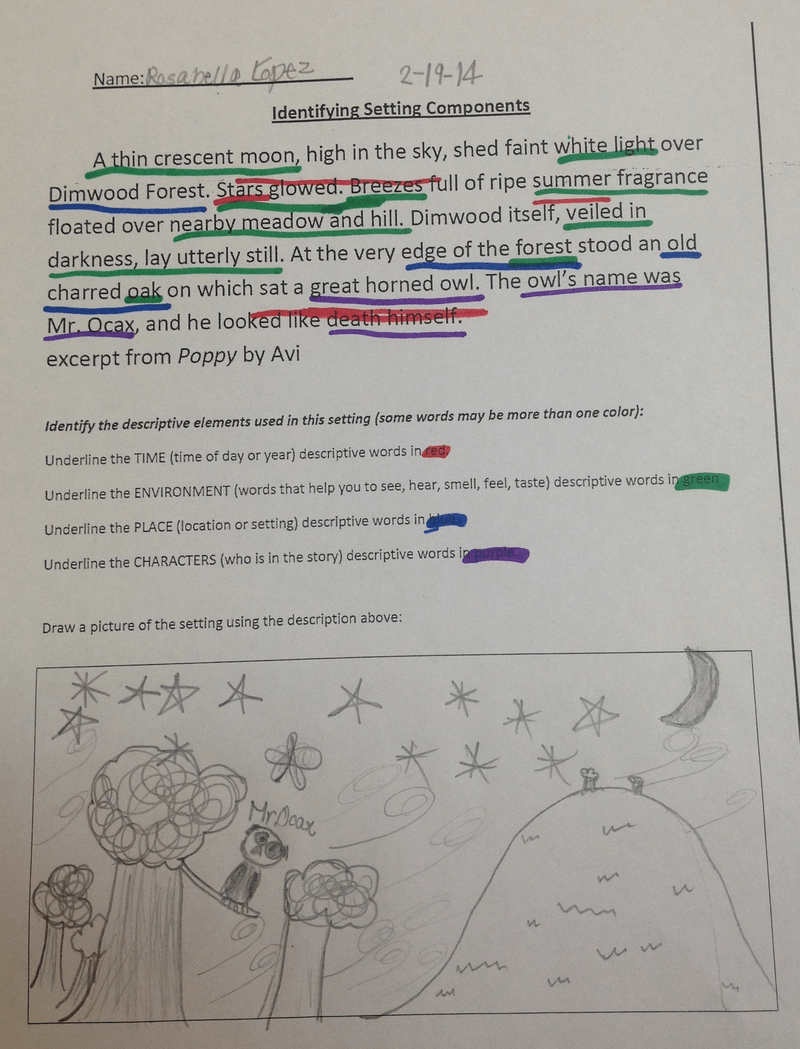 Name: Rosabella Lopez 2-19-14
Identifying Setting Components
A thin crescent moon, high in the sky, shed faint white light over
Dimwood Forest. Stars glowed. Breezes full of ripe summer fragrance
floated over nearby meadow and hill. Dimwood itself, veiled in
darkness, lay utterly still. At the very edge of the forest stood an old
charred oak on which sat a great horned owl. The owl's name was
Mr. Ocax, and he looked like death himself.
excerpt from Poppy by Avi
Identify the descriptive elements used in this setting (some words may be more than one color):
Underline the TIME (time of day or year) descriptive words in red.
Underline the ENVIRONMENT (words that help you to see, hear, smell, feel, taste) descriptive words in green.
Underline the PLACE (location or setting) descriptive words in blue.
Underline the CHARACTERS (who is in the story) descriptive words in purple.
Draw a picture of the setting using the description above:
Mr.Ocax